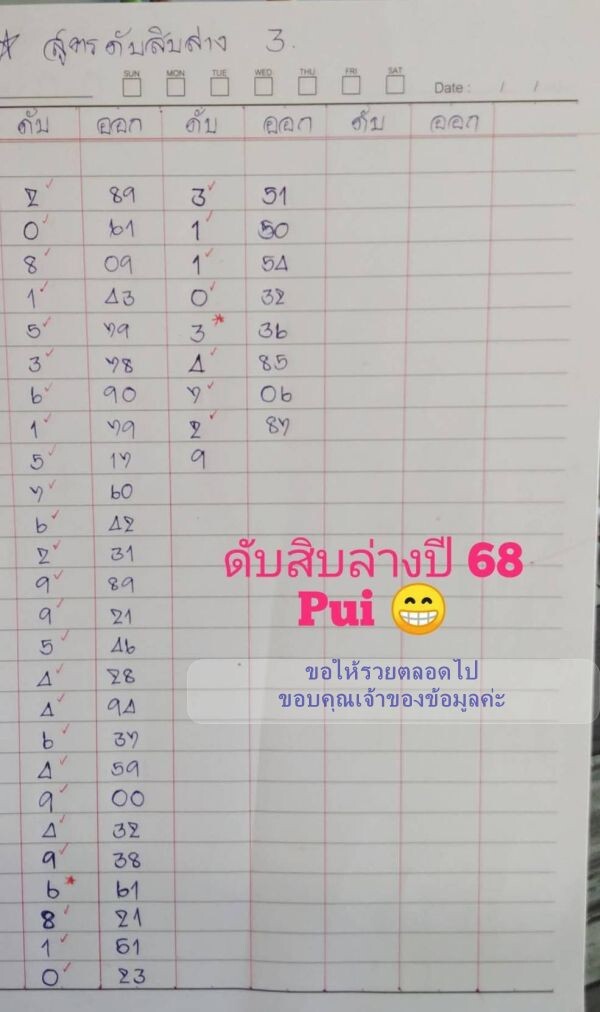 * สูตรดับสิบล่าง 3.
SUN MON TUE WED THU FRI SAT
Date : / /
ดับ ออก ดับ ออก ดับ ออก
2 89 3 51
0 61 1 50
8 09 1 54
1 43 0 32
5 79 3 * 36
3 78 4 85
6 90 7 06
1 79 2 87
5 17 9
7 60
6 42
2 31
9 89
9 21
5 46
4 28
4 94
6 37
4 59
9 00
4 32
9 38
6 * 61
8 21
1 51
0 23
ดับสิบล่างปี 68
Pui 😁
ขอให้รวยตลอดไป
ขอบคุณเจ้าของข้อมูลค่ะ